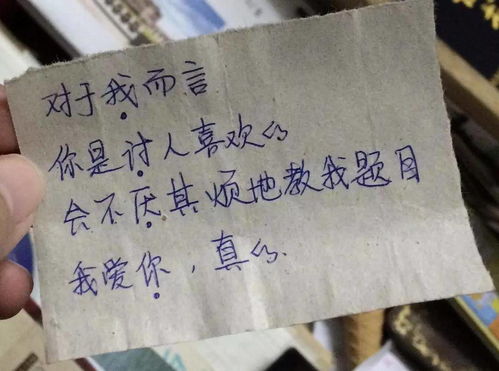 对于我而言
你是讨人喜欢的
会不厌其烦地教我题目
我爱你，真的.